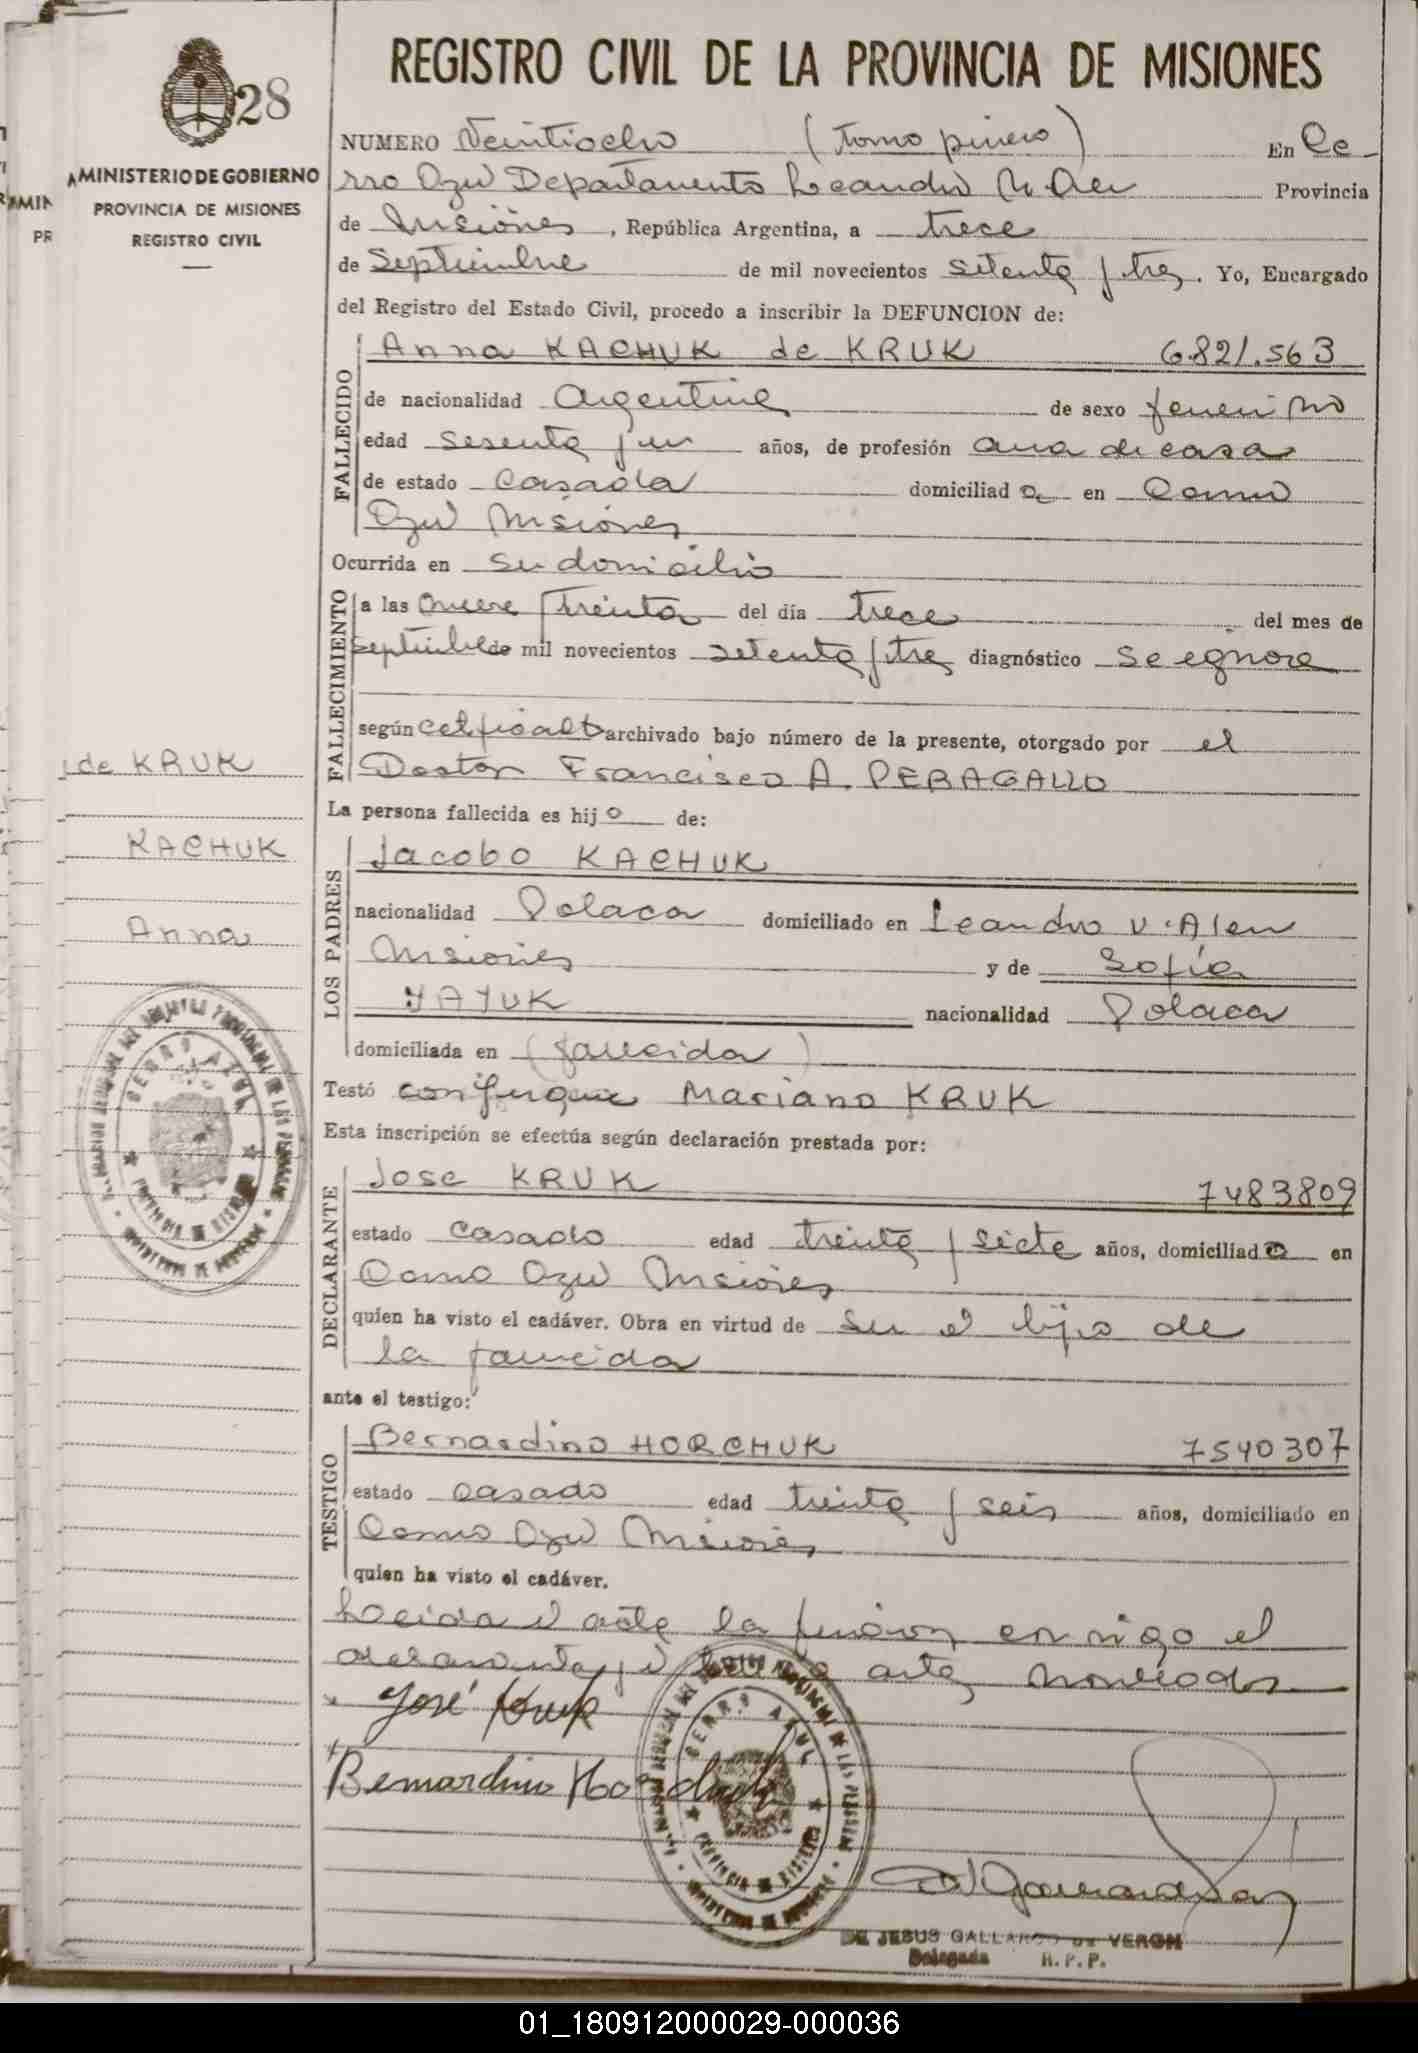 REGISTRO CIVIL DE LA PROVINCIA DE MISIONES
28
MINISTERIO DE GOBIERNO
PROVINCIA DE MISIONES
REGISTRO CIVIL
NUMERO Veintiocho (tomo primero) En Ce
rro Azul Departamento Leandro N. Alem Provincia
de Misiones, República Argentina, a trece
de Septiembre de mil novecientos setenta y tres. Yo, Encargado
del Registro del Estado Civil, procedo a inscribir la DEFUNCION de:
FALLECIDO
Anna KACHUK de KRUK 6.821.563
de nacionalidad Argentina de sexo femenino
edad sesenta y un años, de profesión ama de casa
de estado Casada domiciliad a en Cerro
Azul Misiones
Ocurrida en su domicilio
FALLECIMIENTO
a las nueve y treinta del día trece del mes de
septiembre de mil novecientos setenta y tres diagnóstico se egnora
según certificado archivado bajo número de la presente, otorgado por el
Doctor Francisco A. PERAGALLO
de KRUK
KACHUK
Anna
La persona fallecida es hij o de:
LOS PADRES
Jacobo KACHUK
nacionalidad Polaca domiciliado en Leandro N. Alem
Misiones y de Sofía
YAYUK nacionalidad Polaca
domiciliada en (fallecida)
Testó conyugue Mariano KRUK
Esta inscripción se efectúa según declaración prestada por:
DECLARANTE
Jose KRUK 7483809
estado casado edad treinta y siete años, domiciliad o en
Cerro Azul Misiones
quien ha visto el cadáver. Obra en virtud de ser el hijo de
la fallecida
ante el testigo:
TESTIGO
Bernardino HORCHUK 7540307
estado casado edad treinta y seis años, domiciliado en
Cerro Azul Misiones
quien ha visto el cadáver.
Leida el acta la firman conmigo el
declarante y el testigo antes nombrados
José Kruk
Bernardino Horchuk
CERRO AZUL
PROVINCIA DE MISIONES
DE JESUS GALLARDO DE VERON
Delegada R.P.P.
01_180912000029-000036